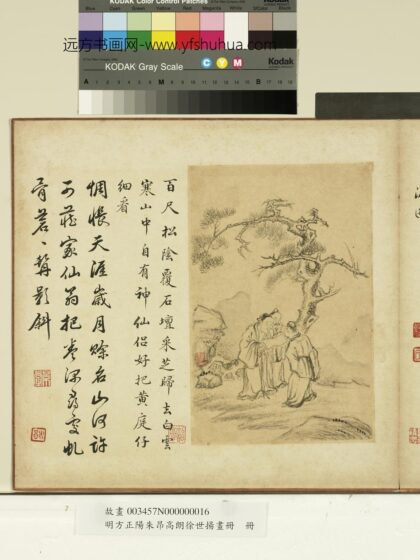 KODAK Color Control Patches
Blue Cyan Green Yellow Red Magenta White 3/Color Black
远方书画网-www.yfshuhua.com
KODAK Gray Scale
C Y M
Kodak
A 1 2 3 4 5 6 M 8 9 10 11 12 13 14 15 B 17 18 19
百尺松陰覆石壇采芝歸去白雲
寒山中自有神仙侶好把黃庭仔
細看
惆悵天涯歲月賒名山何許
可藏家仙翁把卷深虬
蒼〻鬢影斜
故畫 003457N000000016
明方正陽朱昂高朗徐世揚畫冊 冊